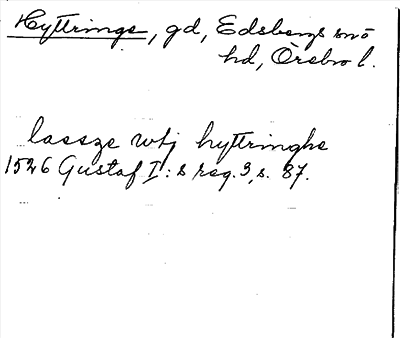 Hyttringe, gd, Edsbergs sn o
hd, Örebro l.
lassze wtj hyttringhe
1526 Gustaf I:s reg. 3, s. 87.